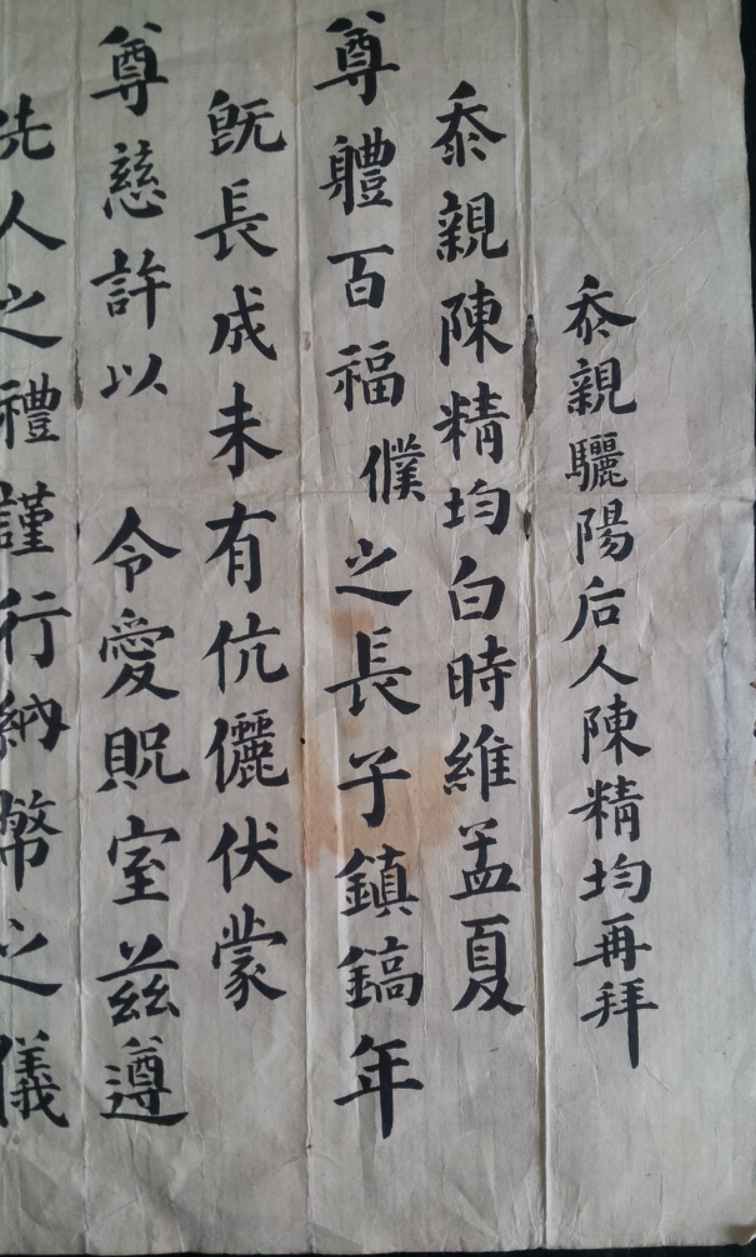 忝親驪陽后人陳精均再拜
忝親陳精均白時維孟夏
尊軆百福 僕之長子鎮鎬年
旣長成未有伉儷伏蒙
尊慈許以 令愛貺室茲遵
先人之禮謹行納幣之儀